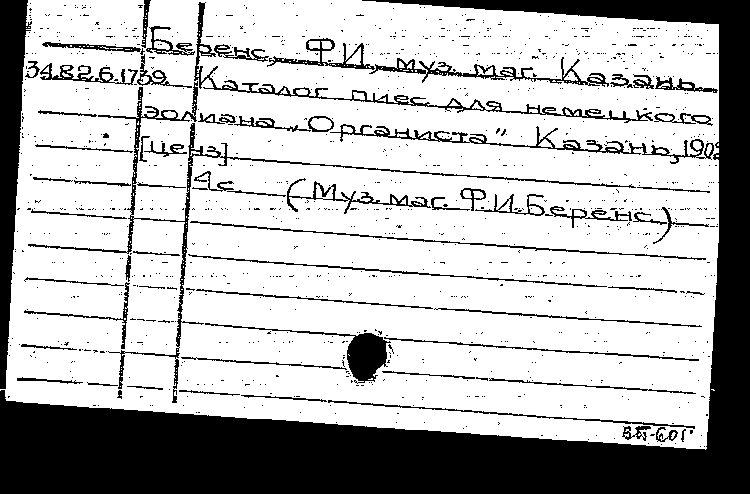 Беренс, Ф.И., муз. маг. Казань.
34.82.6.1739. Каталог пиес для немецкого
эолиана „Органиста" Казань, 1902
[ценз]
4 с. (Муз. маг. Ф.И. Беренс.)